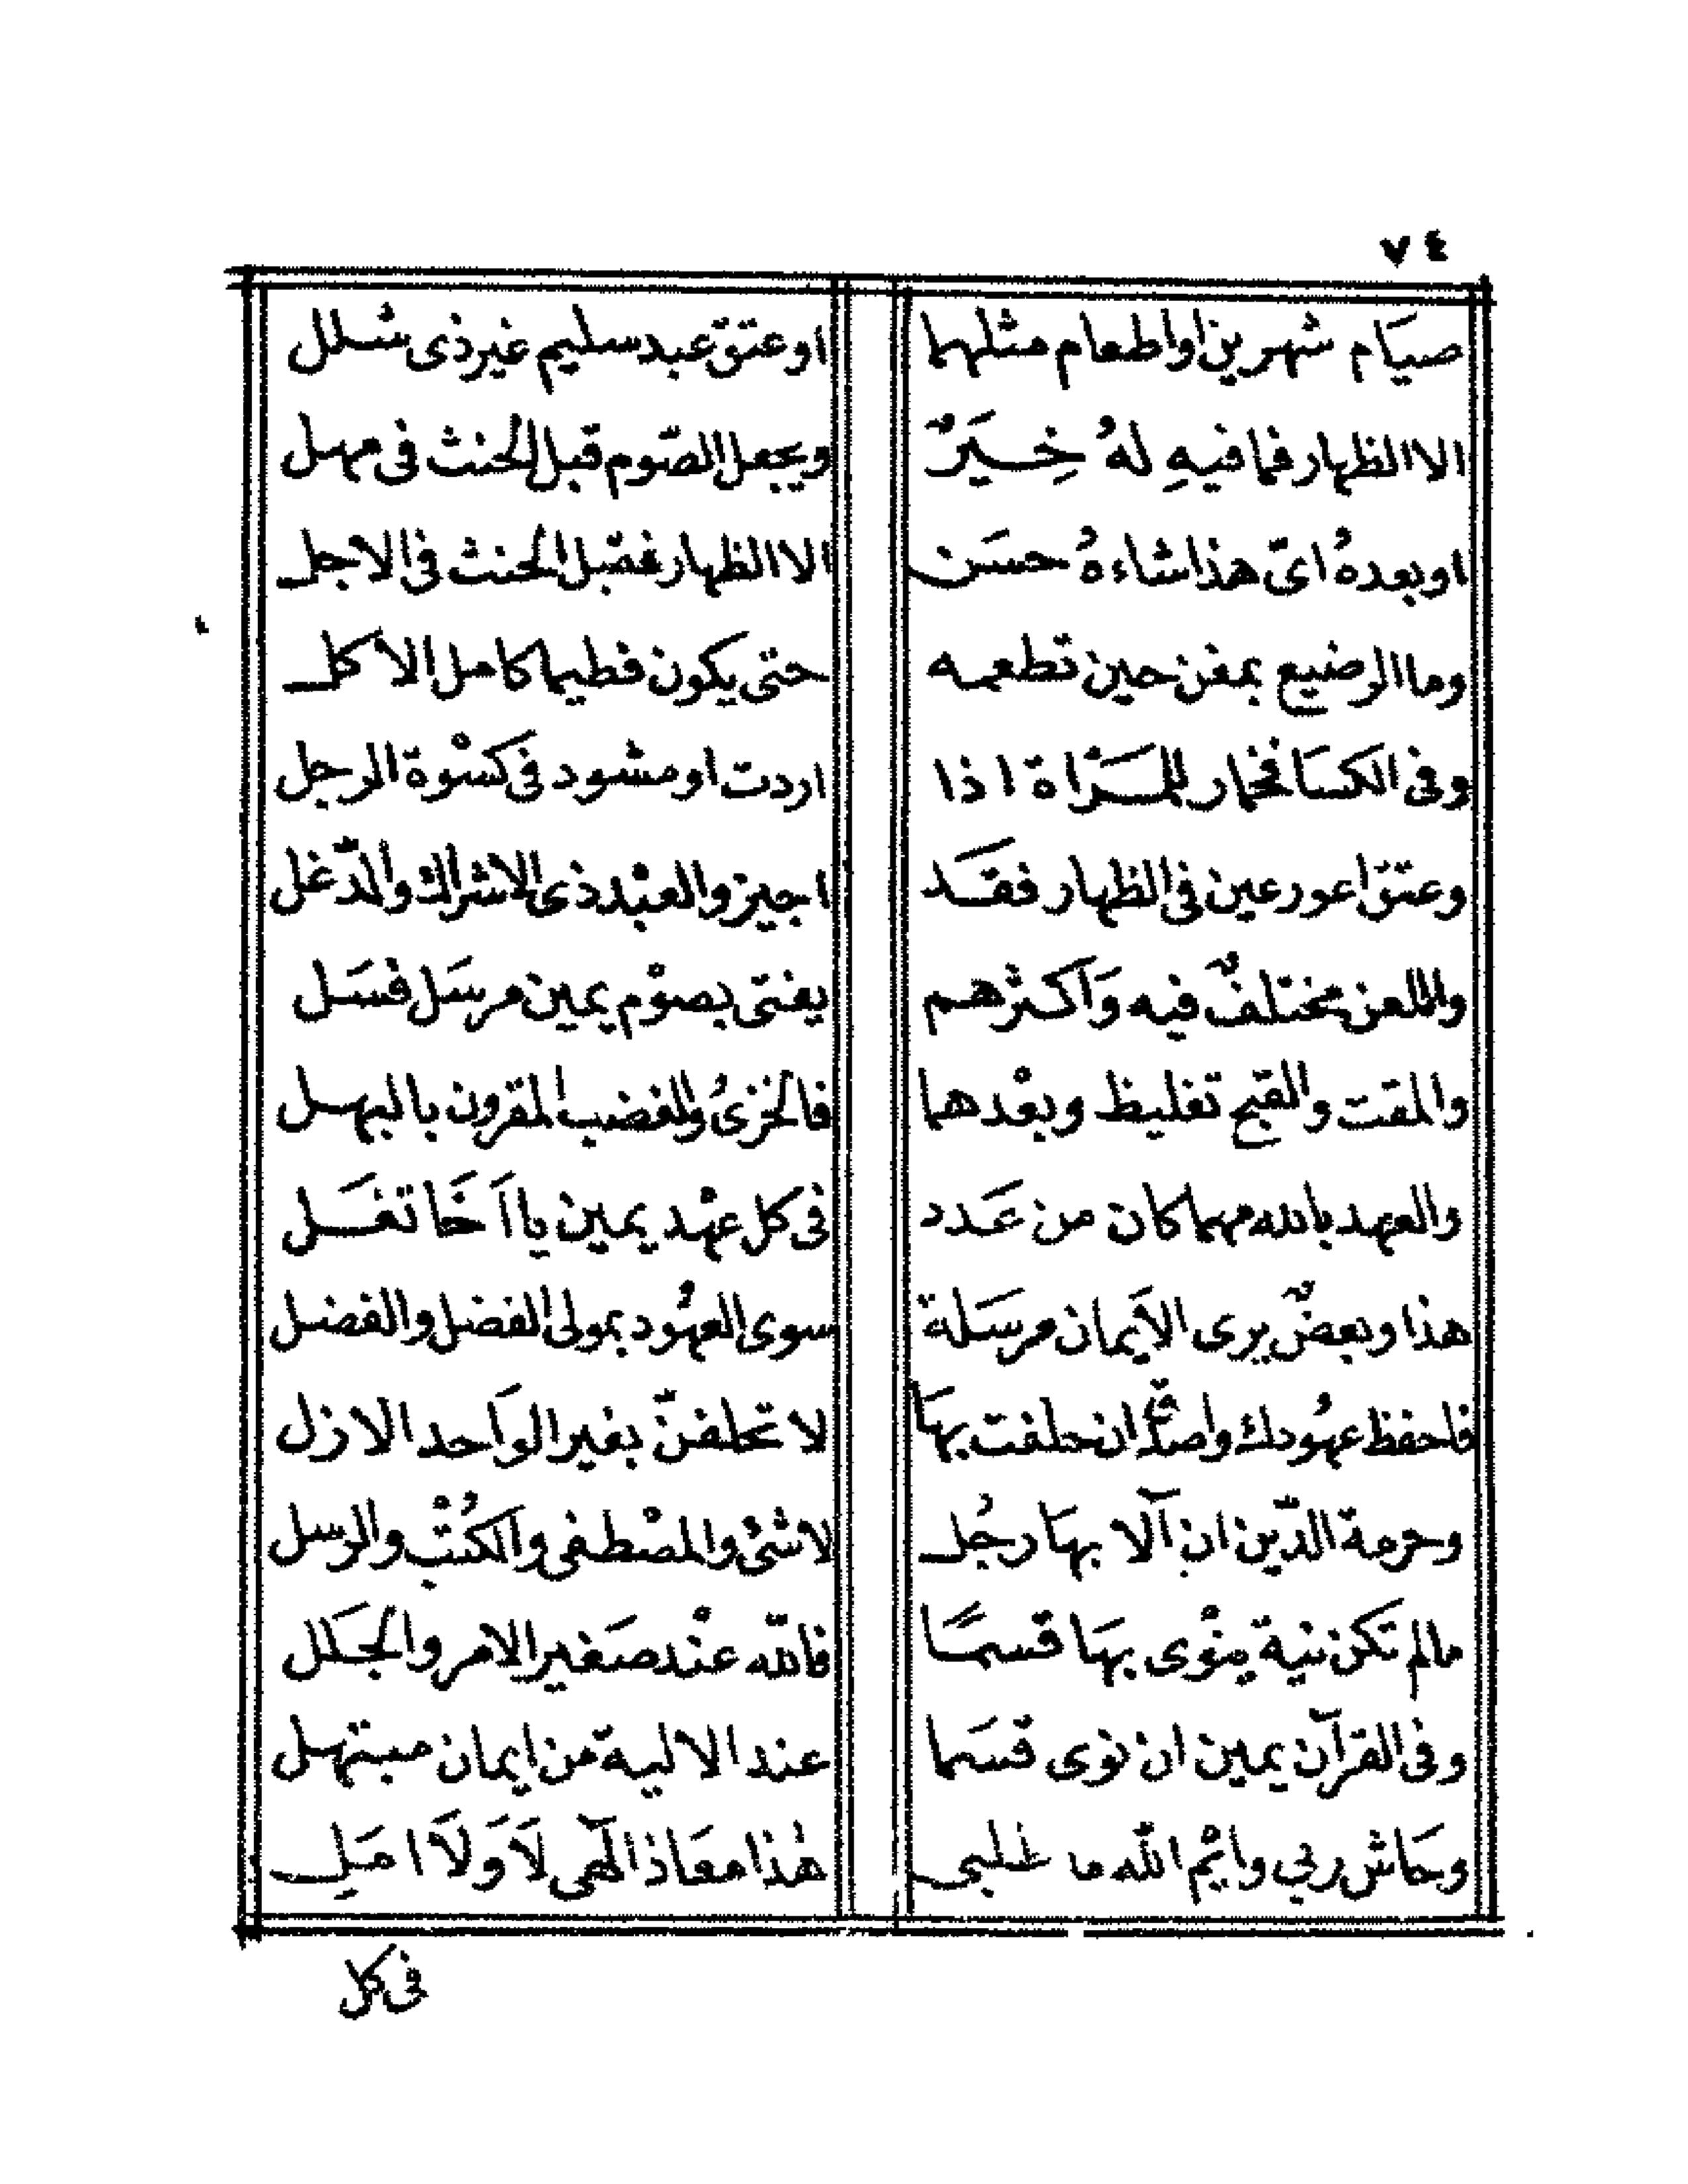 ٧٤
صيَام شهرين او اطعام مثلهما او عتق عبد سليم غير ذى شلل
الا الظهار فما فيهِ لهُ خِيَرٌ ويجعل الصّوم قبل الحنث فى مهل
او بعدهُ اىّ هذا شاءهُ حسَن الا الظهار فقبل الحنث فى الاجل
وما الرضيع بمغن حين تطعمه حتى يكون فطيما كامل الاكل
وفى الكسَا فخمار للمَرْاة اذا اردت او مشود فى كسْوة الرجل
وعتق اعور عين فى الظهار فقَد اجيز والعبْد ذى الاشراك والدّغل
واللعن مختلفٌ فيه وَاكثرهم يفتى بصوْم يمين مرسَل فسَل
والمقت والقبح تغليظ وبعْدها فالخزىُ والغضب المقرون بالبهل
والعهد بالله مهما كان من عَدد فى كل عهْد يمين يا اَخَا تغَل
هذا وبعضٌ يرى الاَيمان مرسَلة سوى العهُود بمولى الفضل والفضل
فاحفظ عهُودك واصدُق ان حلفت بهَا لا تحلفنّ بغير الوَاحد الازل
وحرمة الدّين ان آلا بهَا رجُل لا شئْ والمصْطفى وَالكُتْب والرسل
مالم تكن نية ينوْى بهَا قسمًا فاللّه عنْد صَغير الامر والجَلل
وفى القرآن يمين ان نوى قسَما عند الالية من ايمان مبتهل
وحَاش ربي وايْم اللّه ما طلبى هٰذا معَاذ الٓهى لَا وَلَا امَلِ
فى كل